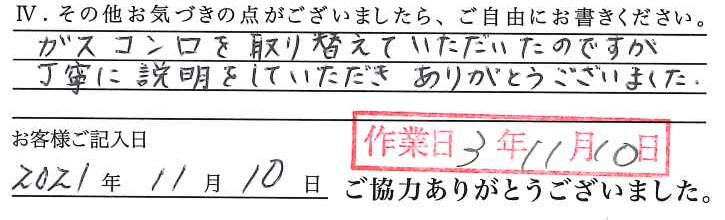 Ⅳ．その他お気づきの点がございましたら、ご自由にお書きください。
ガスコンロを取り替えていただいたのですが
丁寧に説明をしていただき ありがとうございました.
作業日3年11月10日
お客様ご記入日
2021年 11月 10日
ご協力ありがとうございました。